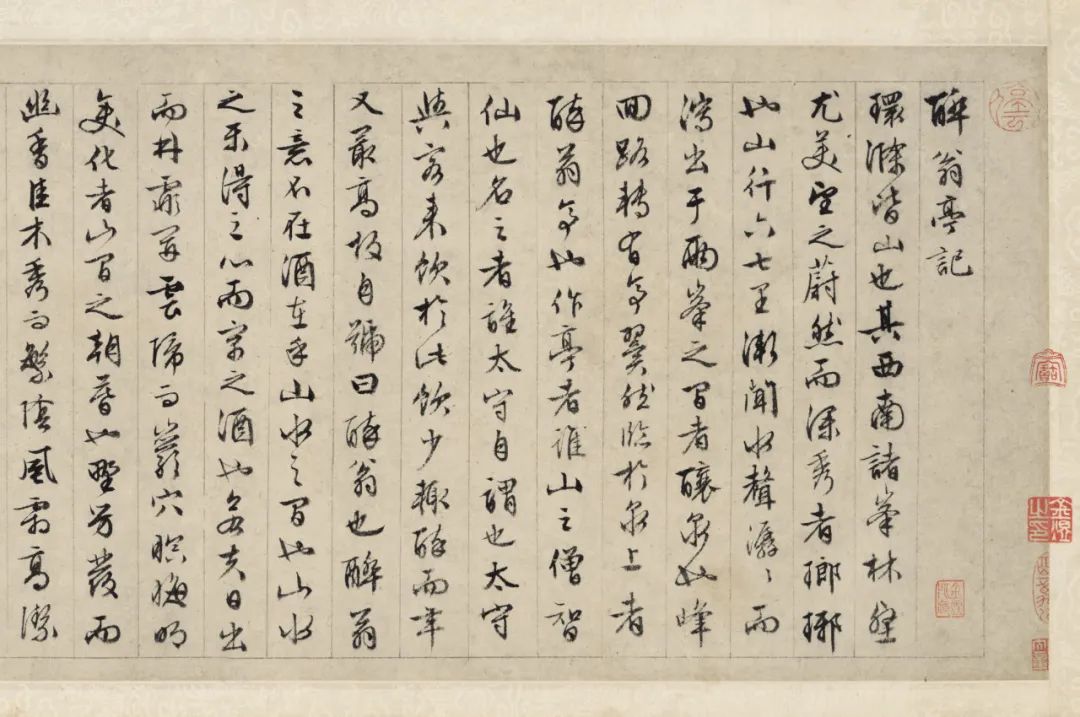 醉翁亭記
環滁皆山也其西南諸峯林壑
尤美望之蔚然而深秀者瑯琊
也山行六七里漸聞水聲潺〻而
瀉出于兩峯之間者釀泉也峰
回路轉有亭翼然臨於泉上者
醉翁亭也作亭者誰山之僧智
仙也名之者誰太守自謂也太守
與客來飲於此飲少輒醉而年
又最高故自號曰醉翁也醉翁
之意不在酒在乎山水之間也山水
之樂得之心而寓之酒也若夫日出
而林霏開雲歸而巖穴暝晦明
變化者山間之朝暮也野芳發而
幽香佳木秀而繁陰風霜高潔
停雲